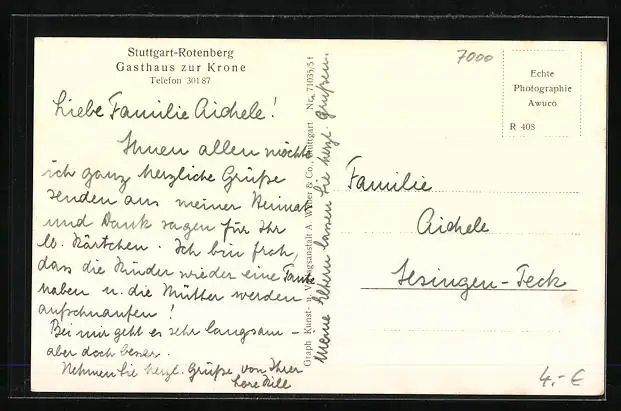 Stuttgart-Rotenberg
Gasthaus zur Krone
Telefon 30187
Liebe Familie Aichele!
Ihnen allen möchte
ich ganz herzliche Grüße
senden aus meiner Heimat
und Dank sagen für Ihr
lb. Kärtchen. Ich bin froh,
dass die Kinder wieder eine Tante
haben u. die Mütter werden
aufschnaufen!
Bei mir geht es sehr langsam -
aber doch besser.
Nehmen Sie herzl. Grüße von Ihrer
Lore
Meine Eltern lassen Sie herzl. grüßen.
Graph. Kunst- u. Verlagsanstalt A. Weber & Co., Stuttgart Nr. 71035/5 f
7000
Echte
Photographie
Awuco
R 408
Familie
Aichele
Jesingen-Teck
4.- €